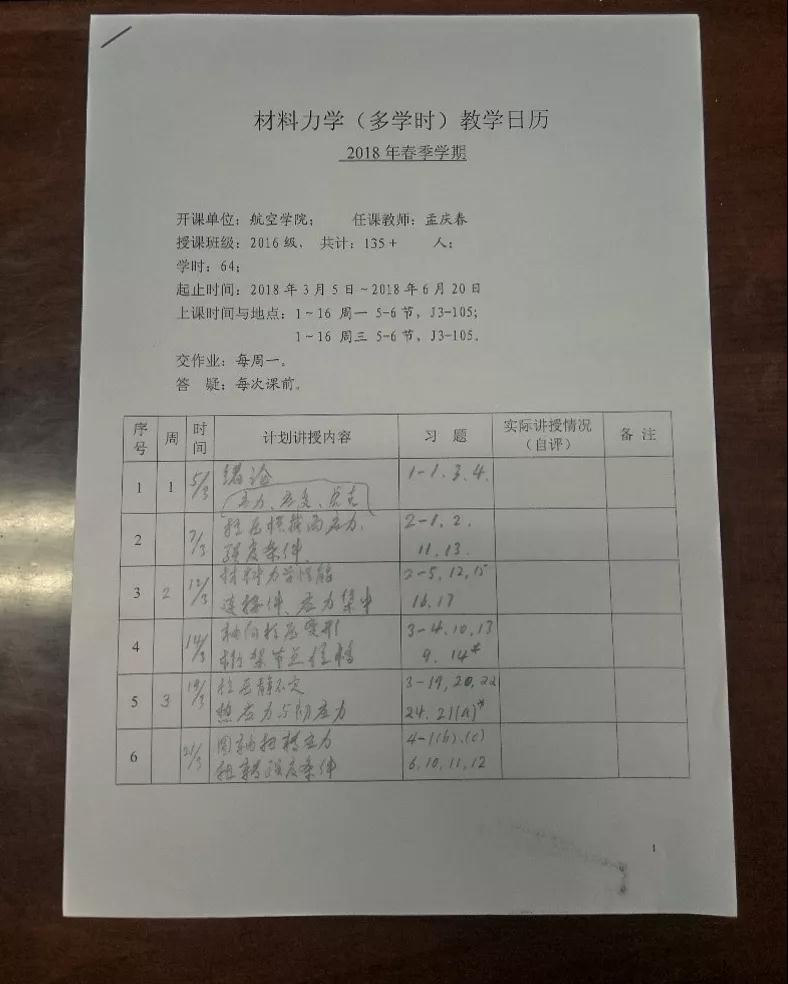 材料力学（多学时）教学日历
2018 年春季学期
开课单位：航空学院； 任课教师：孟庆春
授课班级：2016 级， 共计：135+ 人；
学时：64；
起止时间：2018 年 3 月 5 日～2018 年 6 月 20 日
上课时间与地点：1~16 周一 5-6 节，J3-105；
1~16 周三 5-6 节，J3-105.
交作业：每周一。
答 疑：每次课前。
序号 周 时间 计划讲授内容 习 题 实际讲授情况（自评） 备 注
1 1 5/3 绪论 1-1. 3. 4.
应力、应变、
2 7/3 拉压横截面应力. 2-1, 2.
强度条件. 11, 13.
3 2 12/3 材料力学性能 2-5, 12, 15
连接件、应力集中 16, 17
4 14/3 轴向拉压变形 3-4, 10, 13
桁架节点位移 9, 14*
5 3 19/3 拉压静不定 3-19, 20, 22
热应力与初应力 24, 21(a)*
6 21/3 圆轴扭转应力 4-1(b), (c)
扭转强度条件 6, 10, 11, 12
1